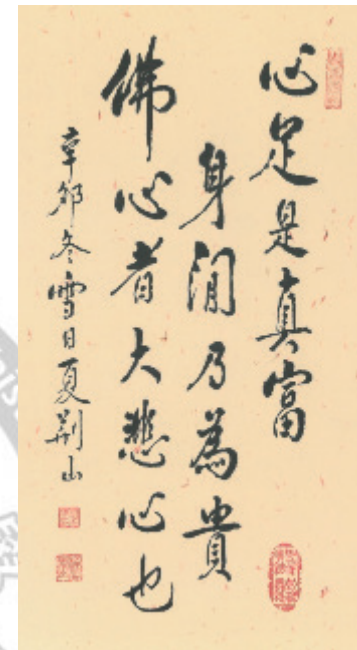 心足是真富
身閒乃為貴
佛心者大悲心也
辛卯冬雪日夏荊山